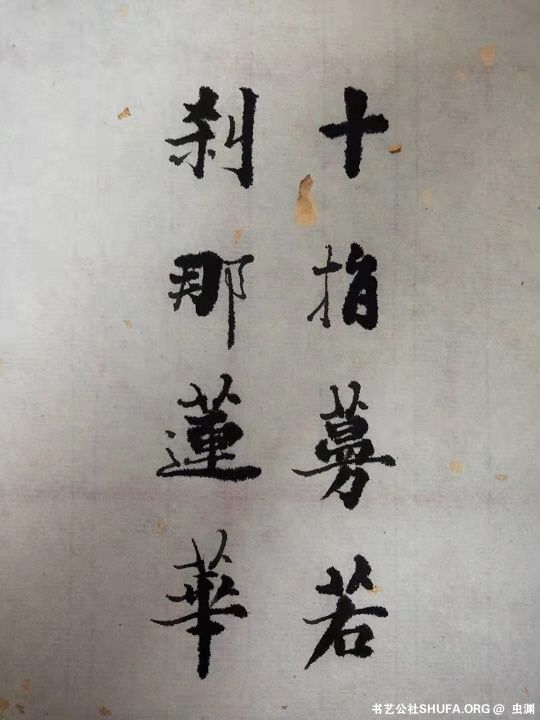 十指蕚若
刹那蓮華
书艺公社SHUFA.ORG @ 虫渊